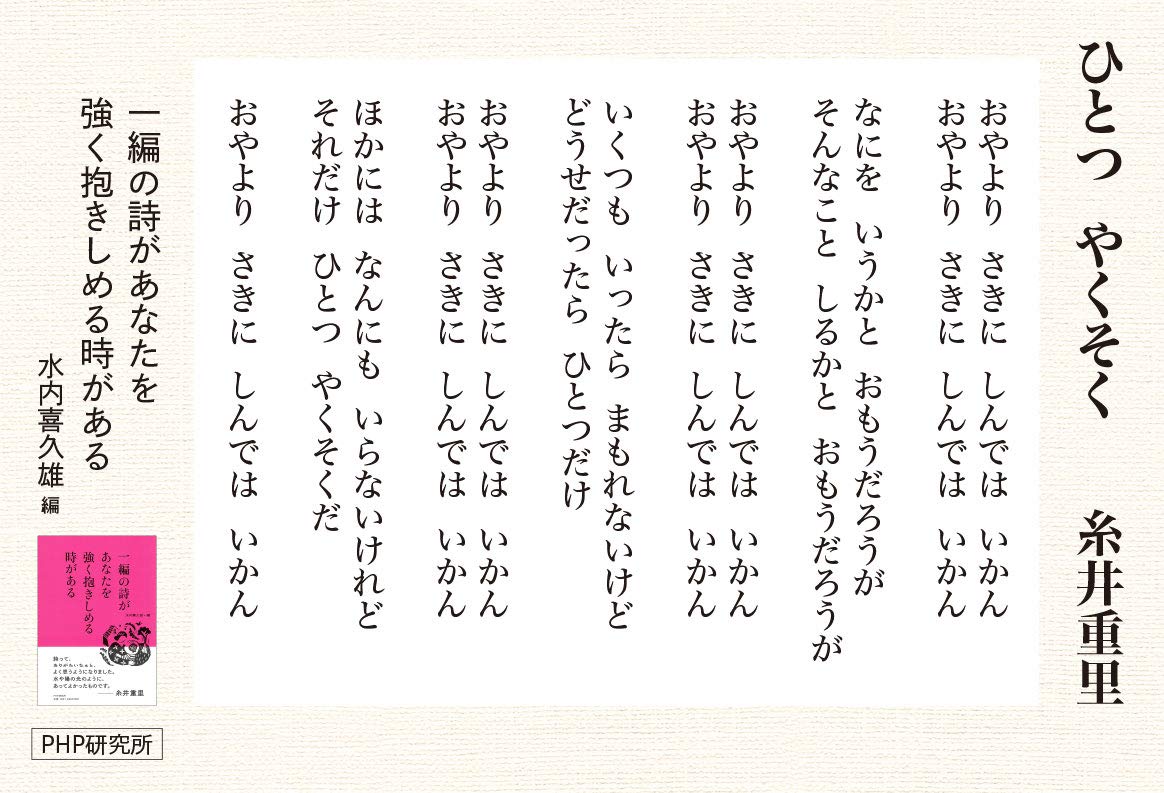 ひとつ　やくそく　　糸井重里
おやより　さきに　しんでは　いかん
おやより　さきに　しんでは　いかん
なにを　いうかと　おもうだろうが
そんなこと　しるかと　おもうだろうが
おやより　さきに　しんでは　いかん
おやより　さきに　しんでは　いかん
いくつも　いったら　まもれないけど
どうせだったら　ひとつだけ
おやより　さきに　しんでは　いかん
おやより　さきに　しんでは　いかん
ほかには　なんにも　いらないけれど
それだけ　ひとつ　やくそくだ
おやより　さきに　しんでは　いかん
一編の詩があなたを
強く抱きしめる時がある
水内喜久雄 編
一編の詩が
あなたを
強く抱きしめる
時がある
詩って、
ありがたいなぁと、
よく思うようになりました。
水や橋の光のように、
あってよかったものです。
糸井重里
PHP研究所